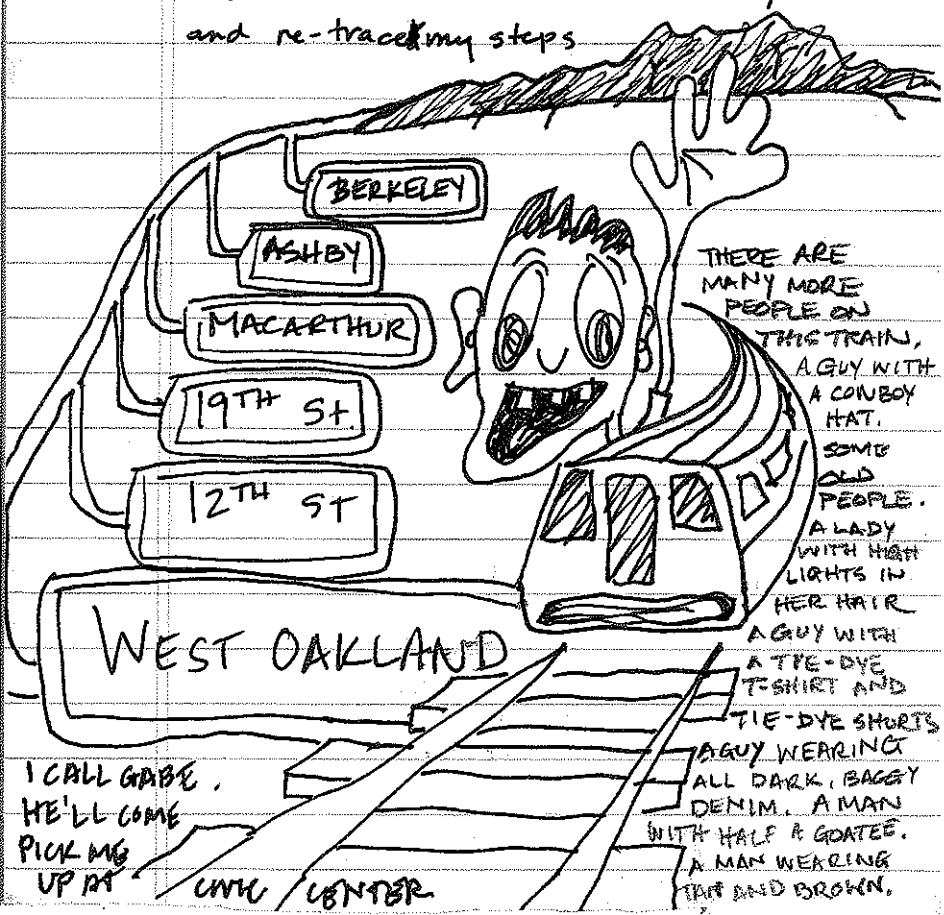 and re-trace my steps
BERKELEY
ASHBY
MACARTHUR
19TH St.
12TH ST
WEST OAKLAND
THERE ARE
MANY MORE
PEOPLE ON
THIS TRAIN.
A GUY WITH
A COWBOY
HAT.
SOME
OLD
PEOPLE.
A LADY
WITH HIGH
LIGHTS IN
HER HAIR
A GUY WITH
A TIE-DYE
T-SHIRT AND
TIE-DYE SHORTS
A GUY WEARING
ALL DARK, BAGGY
DENIM. A MAN
WITH HALF A GOATEE.
A MAN WEARING
TAN AND BROWN.
I CALL GABE.
HE'LL COME
PICK ME
UP AT CIVIC CENTER